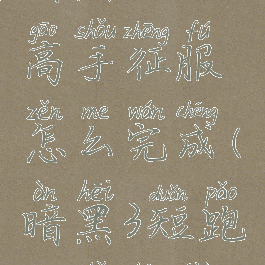 gāo shǒu zhēng fú
高手征服
zěn me wán chéng
怎么完成(
àn hēi duǎn pǎo
暗黑3短跑